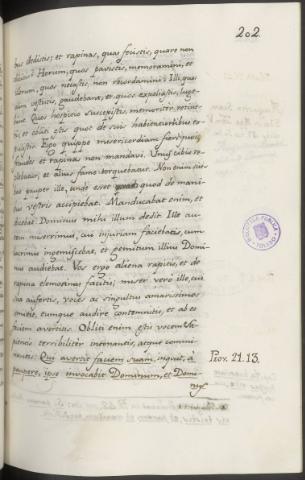 202
bus dedistis; et rapinas, quas fecistis, quare non
dicitis? Horum, quos pavistis, memoramini, et
illorum, quos necastis, non recordamini? Ille, quem
vestistis, gaudebat, et quos expoliastis, luge-
bant. Quos hospitio suscepistis, memoriter retine-
tis, et obliti estis quot de suis habitationibus ex-
pulistis. Ego quippe misericordiam
fraudes et rapinas non mandavi. Unus cibis re-
plebatur, et alius fame torquebatur. Non enim fue-
rat pauper ille, unde esset quod de mani-
bus vestris acciperet. Manducabat enim, et
dicebat Dominus mihi illum dedit. Ille au-
tem miserrimus, cui injuriam faciebatis, cum
lacrimis ingemiscebat, et gemitum illius Domi-
nus audiebat. Vos ergo aliena rapitis, et de
rapina elemosinas facitis; miser vero ille, cui
ea aufertis, voces ac singultus amarissimos
emittit, eumque audire contemnitis, et ab eo
faciem avertitis. Obliti enim estis vocem Sa-
pientis terribiliter intonantis, atque commi-
nantis: Qui avertit faciem suam, inquit, a
paupere, ipse invocabit Dominum, et Domi-
nus
Prov. 21. 13.
BIBLIOTECA PUBLICA
TOLEDO